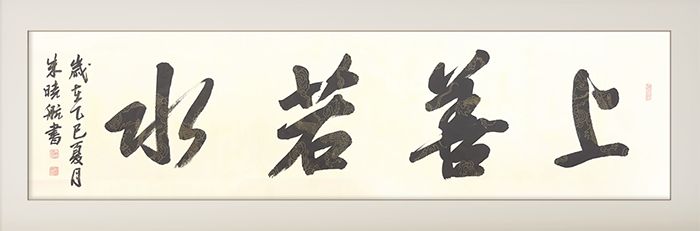 上善若水
歲在乙巳夏月
朱曉航書